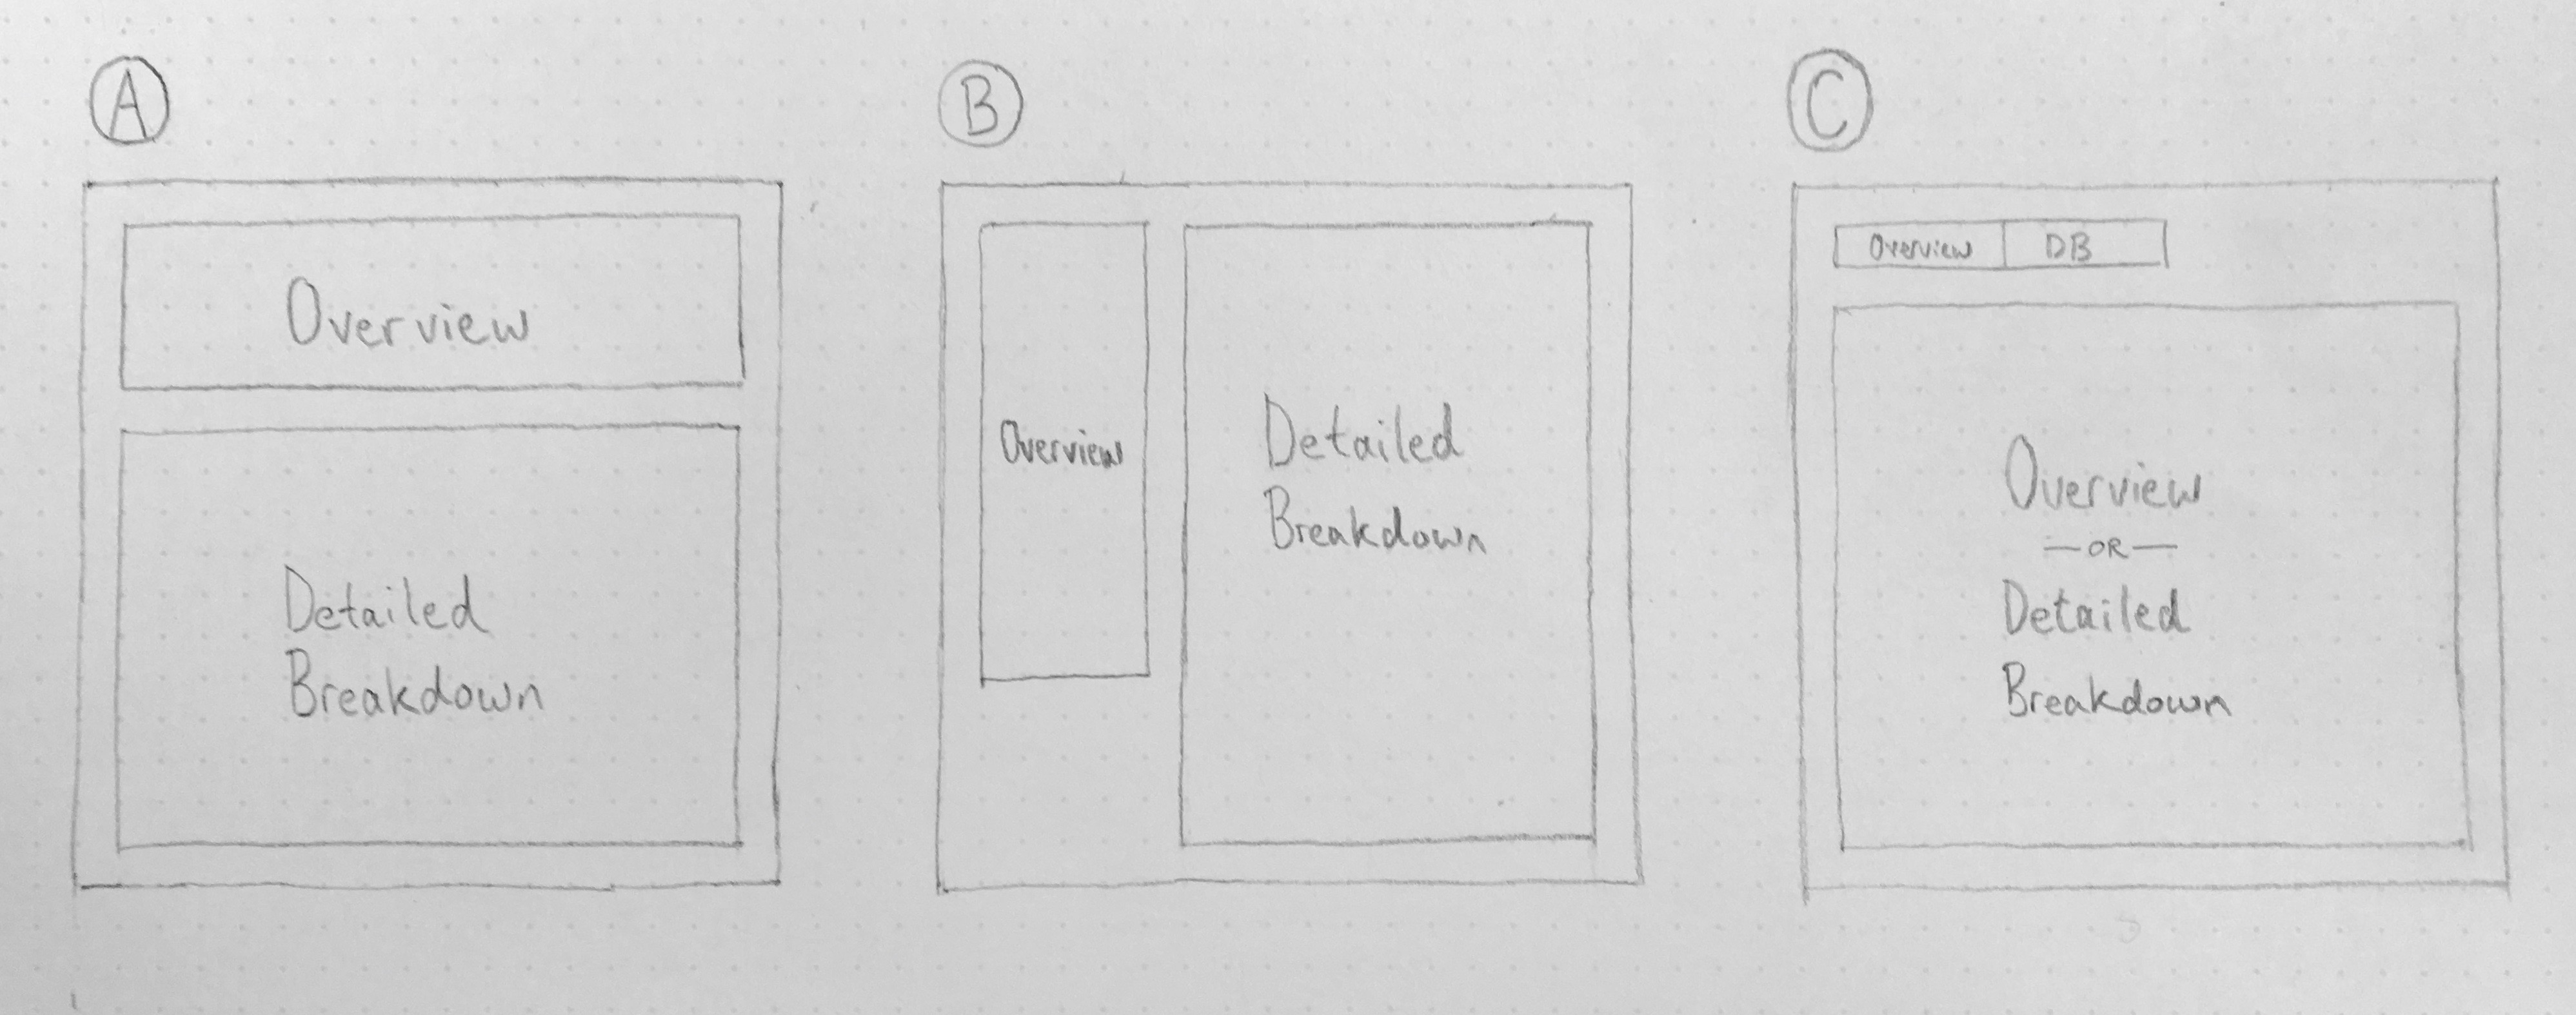 A
Overview
Detailed
Breakdown
B
Overview
Detailed
Breakdown
C
Overview DB
Overview
—OR—
Detailed
Breakdown